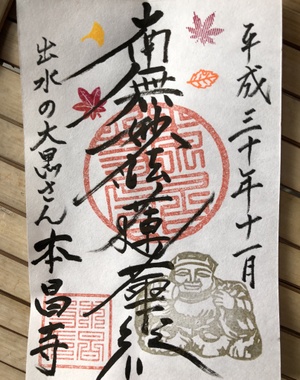 平成三十年十一月
南無妙法蓮華経
出水の大黒さん 本昌寺